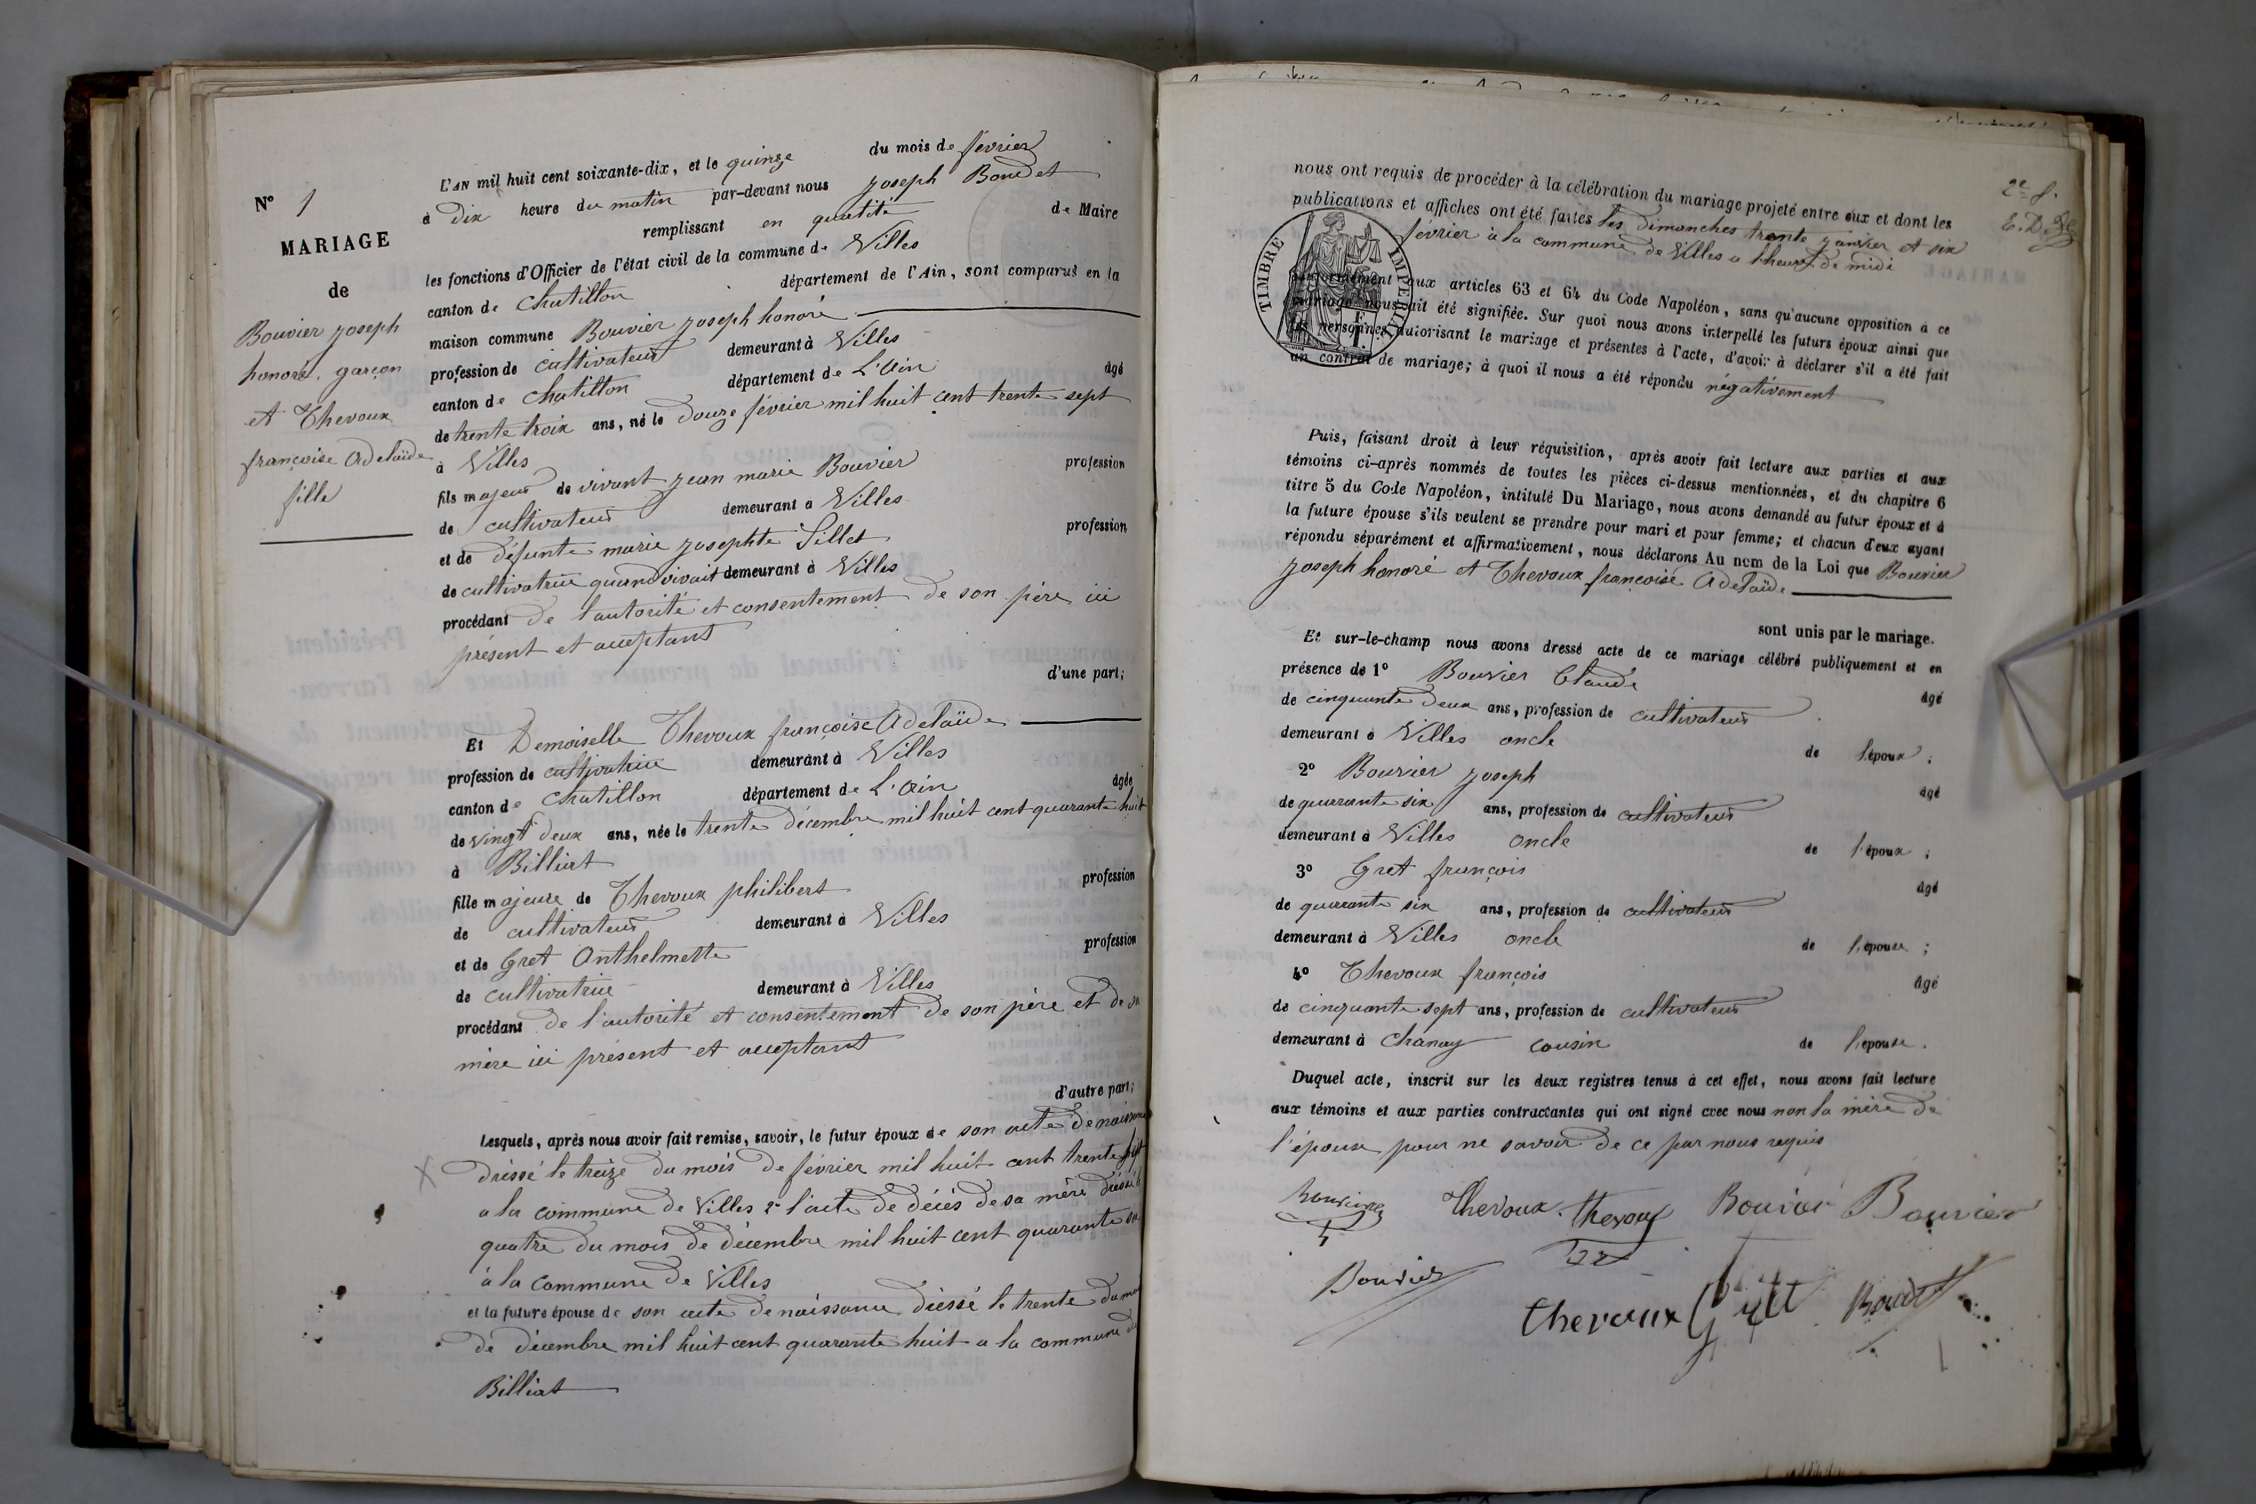 L'AN mil huit cent soixante-dix, et le quinze du mois de février
à dix heure du matin par-devant nous Joseph Boudet
remplissant en qualité de Maire
les fonctions d'Officier de l'état civil de la commune de Villes
canton de Chatillon département de l'Ain, sont comparus en la
maison commune Bouvier Joseph honoré
profession de cultivateur demeurant à Villes
canton de Chatillon département de L'Ain âgé
de trente trois ans, né le douze février mil huit cent trente sept
à Villes
fils majeur de vivant Jean marie Bouvier profession
de cultivateur demeurant à Villes
et de défunte marie Josephte Pillet profession
de cultivatrice quand vivait demeurant à Villes
procédant de l'autorité et consentement de son père ici
présent et acceptant
d'une part;
Et Demoiselle Thevoux françoise Adelaïde
profession de cultivatrice demeurant à Villes
canton de Chatillon département de L'Ain âgée
de vingt deux ans, née le trente décembre mil huit cent quarante huit
à Billiat
fille majeure de Thevoux philibert profession
de cultivateur demeurant à Villes
et de Gret Anthelmette profession
de cultivatrice demeurant à Villes
procédant de l'autorité et consentement de son père et de sa
mère ici présent et acceptant
d'autre part;
Lesquels, après nous avoir fait remise, savoir, le futur époux de son acte de naissance
dressé le treize du mois de février mil huit cent trente sept
a la commune de Villes 2º l'acte de décès de sa mère dressé le
quatre du mois de décembre mil huit cent quarante
à la commune de Villes
et la future épouse de son acte de naissance dressé le trente du mois
de décembre mil huit cent quarante huit a la commune de
Billiat
Nº 1
MARIAGE
de
Bouvier Joseph
honoré, garçon
et Thevoux
françoise Adelaïde
fille
nous ont requis de procéder à la célébration du mariage projeté entre eux et dont les
publications et affiches ont été faites les dimanches trente Janvier et six
février à la commune de Villes a l'heure de midi
conformément aux articles 63 et 64 du Code Napoléon, sans qu'aucune opposition à ce
mariage nous ait été signifiée. Sur quoi nous avons interpellé les futurs époux ainsi que
les personnes autorisant le mariage et présentes à l'acte, d'avoir à déclarer s'il a été fait
un contrat de mariage; à quoi il nous a été répondu négativement
TIMBRE IMPERIAL
2e f.
Puis, faisant droit à leur réquisition, après avoir fait lecture aux parties et aux
témoins ci-après nommés de toutes les pièces ci-dessus mentionnées, et du chapitre 6
titre 5 du Code Napoléon, intitulé Du Mariage, nous avons demandé au futur époux et à
la future épouse s'ils veulent se prendre pour mari et pour femme; et chacun d'eux ayant
répondu séparément et affirmativement, nous déclarons Au nom de la Loi que Bouvier
Joseph honoré et Thevoux françoise Adelaïde
sont unis par le mariage.
Et sur-le-champ nous avons dressé acte de ce mariage célébré publiquement et en
présence de 1º Bouvier Claude âgé
de cinquante deux ans, profession de cultivateur
demeurant à Villes oncle de l'époux;
2º Bouvier Joseph âgé
de quarante six ans, profession de cultivateur
demeurant à Villes oncle de l'époux;
3º Gret françois âgé
de quarante six ans, profession de cultivateur
demeurant à Villes oncle de l'épouse;
4º Thevoux françois âgé
de cinquante sept ans, profession de cultivateur
demeurant à Chanay cousin de l'épouse.
Duquel acte, inscrit sur les deux registres tenus à cet effet, nous avons fait lecture
aux témoins et aux parties contractantes qui ont signé avec nous non la mère de
l'épouse pour ne savoir de ce par nous requis
Bouvier Thevoux Thevoux Bouvier Bouvier
Bouvier Thevoux Gret Boudet